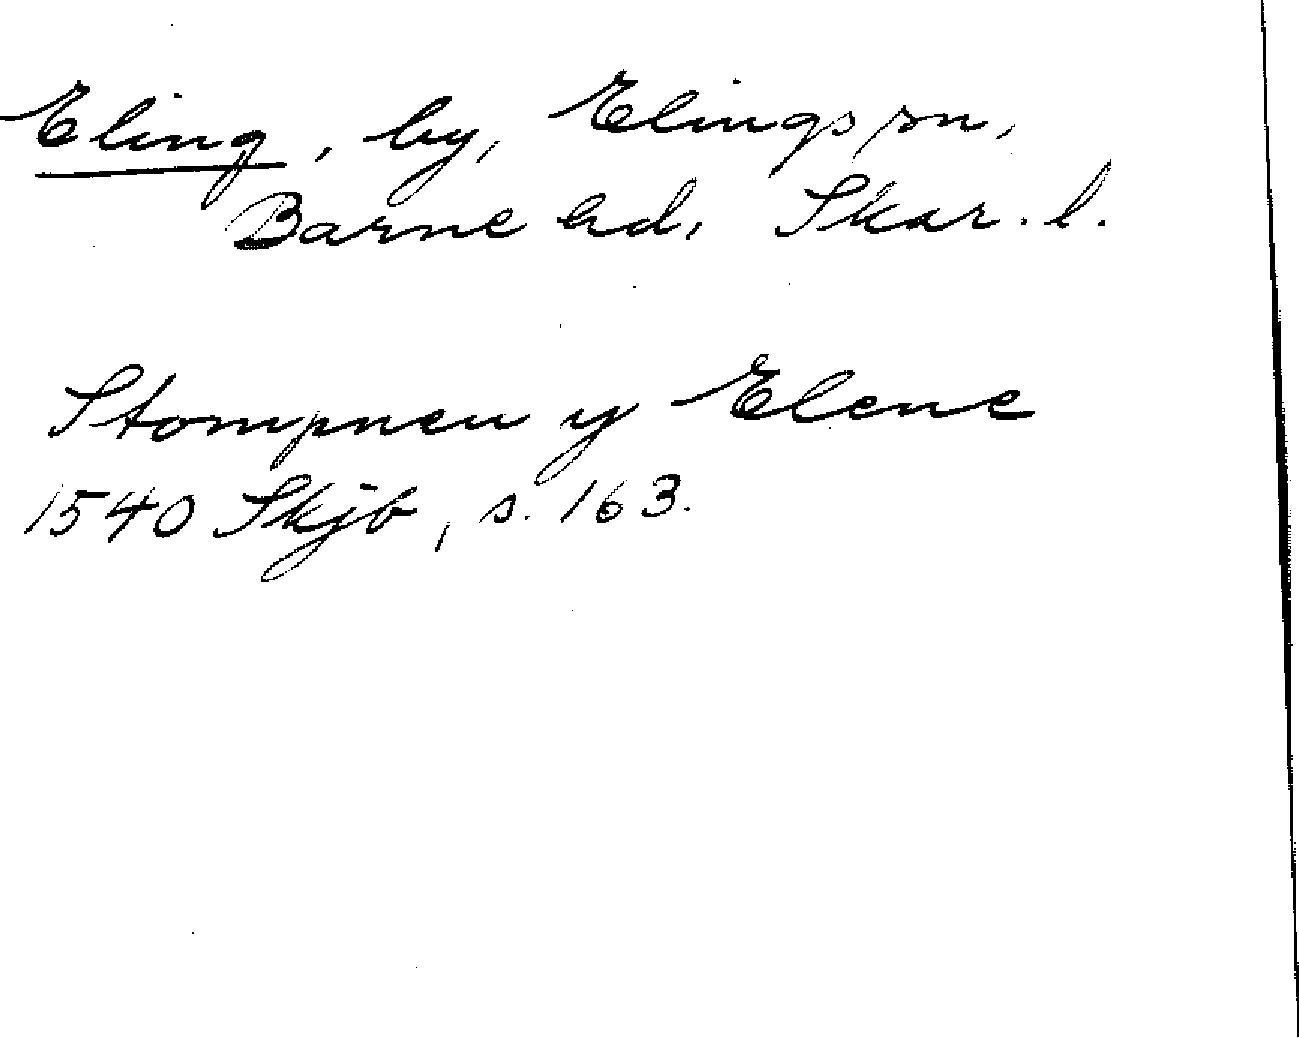 Eling, by, Elings sn,
Barne hd, Skar. l.
Stompneu y Elene
1540 Skjb, s. 163.